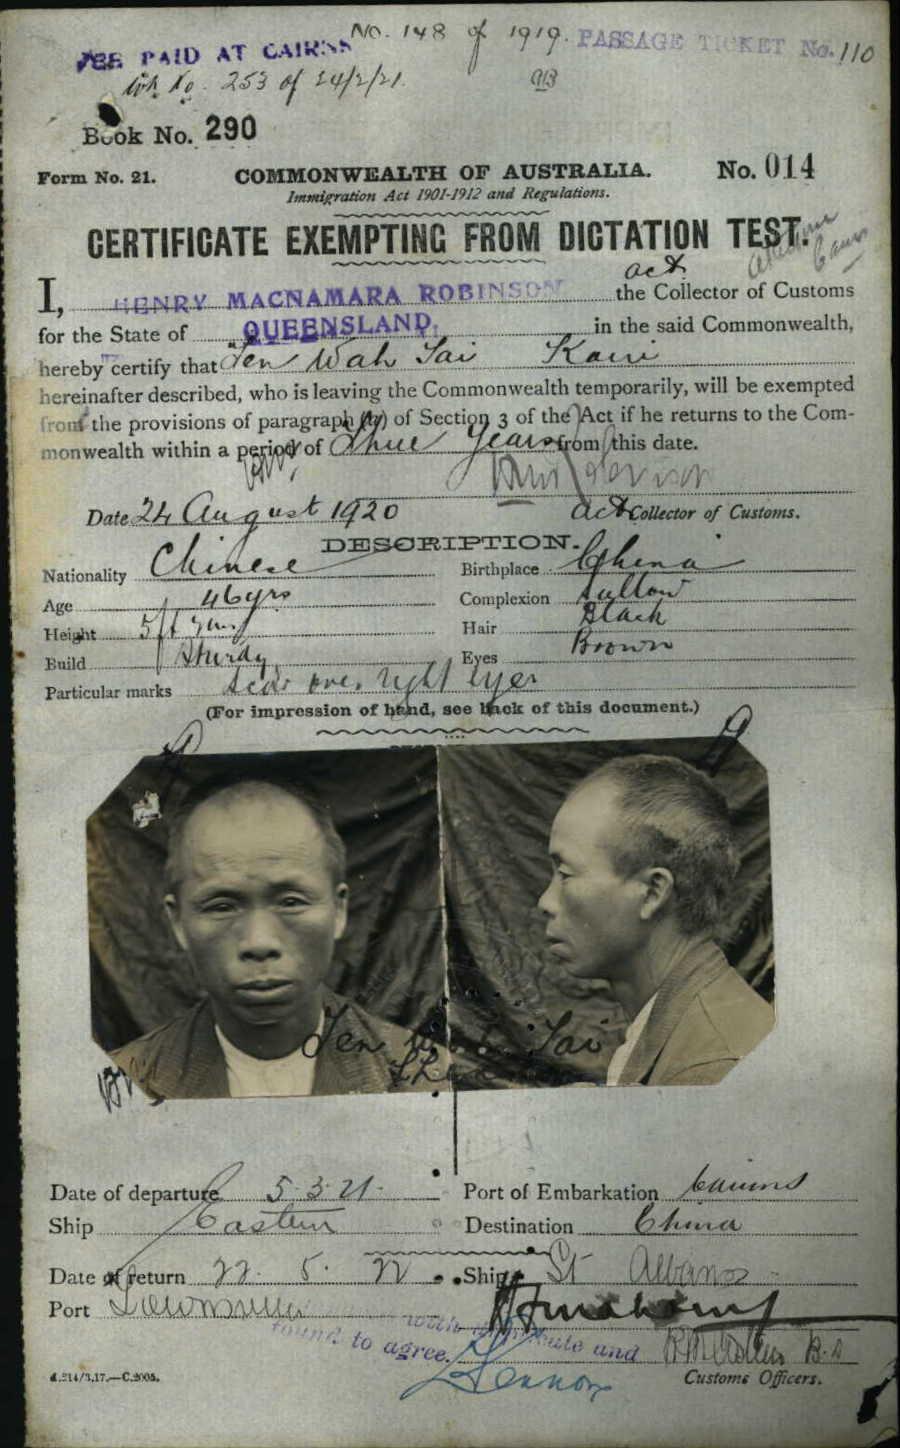 No. 148 of 1919. PASSAGE TICKET No. 110
FEE PAID AT CAIRNS
No. 253 of 24/2/21.
Book No. 290
Form No. 21. COMMONWEALTH OF AUSTRALIA. No. 014
Immigration Act 1901-1912 and Regulations.
CERTIFICATE EXEMPTING FROM DICTATION TEST.
act.
I, HENRY MACNAMARA ROBINSON the Collector of Customs
for the State of QUEENSLAND. in the said Commonwealth,
hereby certify that Jen Wah Tai
hereinafter described, who is leaving the Commonwealth temporarily, will be exempted
from the provisions of paragraph (a) of Section 3 of the Act if he returns to the Com-
monwealth within a period of Three Years from this date.
Date 24 August 1920 act Collector of Customs.
DESCRIPTION.
Nationality Chinese Birthplace China
Age 46 yrs Complexion Sallow
Height 5 ft Hair Black
Build Sturdy Eyes Brown
Particular marks Scar over right eye
(For impression of hand, see back of this document.)
Jen Wah Tai
Date of departure 5.3.21. Port of Embarkation Cairns
Ship Eastern Destination China
Date of return 22. 5. 22 Ship St Albans
Port Townsville
with duplicate and
found to agree.
Lennox
Customs Officers.